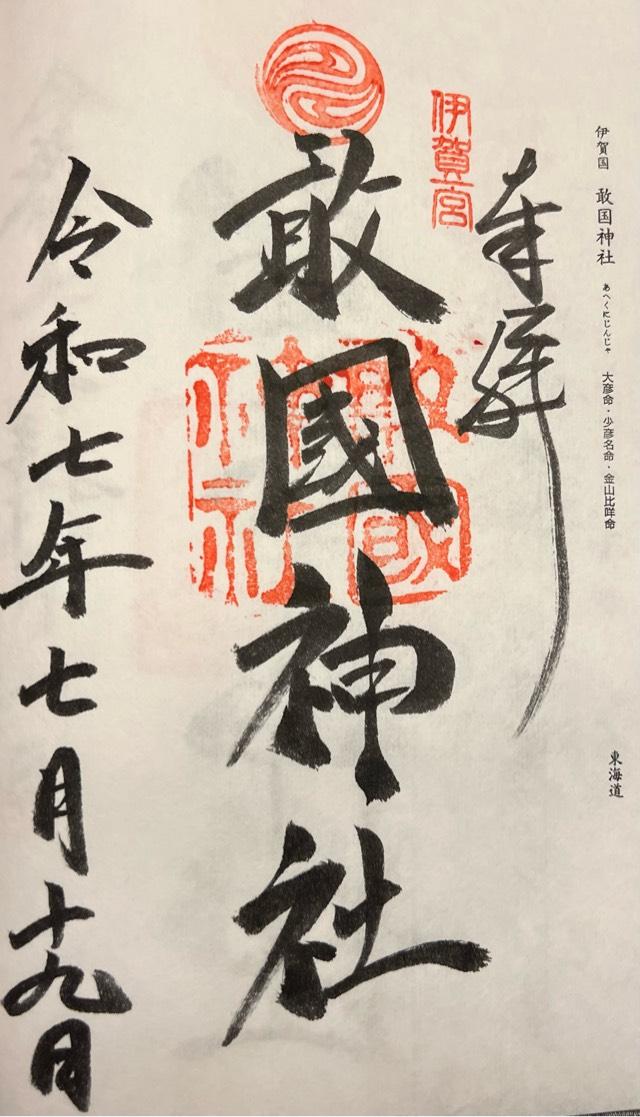 伊賀国 敢国神社 あへくにじんじゃ 大彦命・少彦名命・金山比咩命
東海道
奉拝
伊賀一宮
敢國神社
敢國神社
令和七年七月十九日